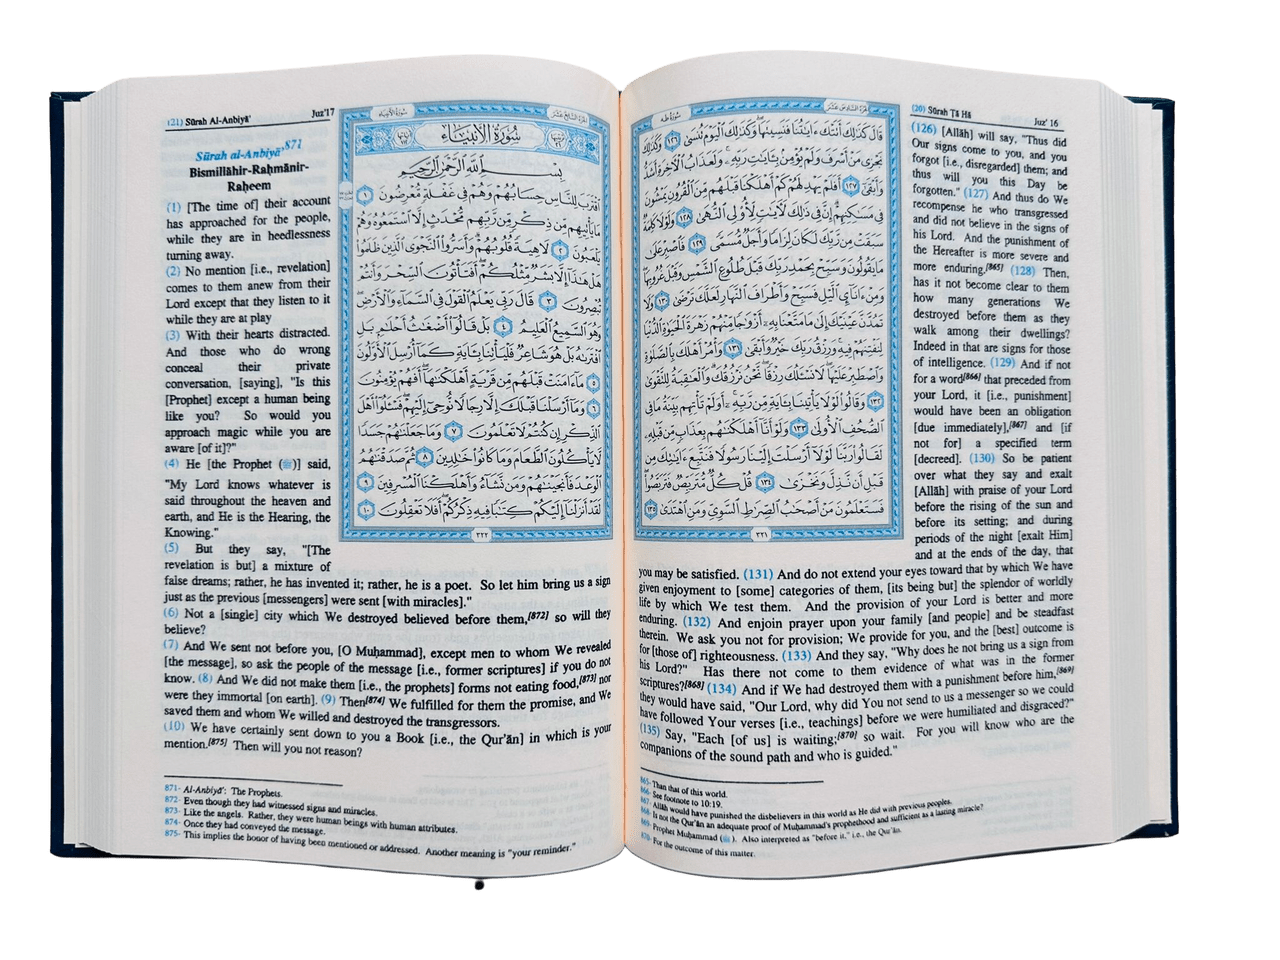 (20) Sūrah Ṭā Hā
Juz' 16
سورة طه
الجزء السادس عشر
قَالَ كَذَٰلِكَ أَتَتْكَ ءَايَٰتُنَا فَنَسِيتَهَا وَكَذَٰلِكَ ٱلْيَوْمَ تُنسَىٰ ١٢٦ وَكَذَٰلِكَ
نَجْزِى مَنْ أَسْرَفَ وَلَمْ يُؤْمِنۢ بِـَٔايَٰتِ رَبِّهِۦ وَلَعَذَابُ ٱلْـَٔاخِرَةِ أَشَدُّ
وَأَبْقَىٰٓ ١٢٧ أَفَلَمْ يَهْدِ لَهُمْ كَمْ أَهْلَكْنَا قَبْلَهُم مِّنَ ٱلْقُرُونِ يَمْشُونَ
فِى مَسَٰكِنِهِمْ إِنَّ فِى ذَٰلِكَ لَـَٔايَٰتٍ لِّأُو۟لِى ٱلنُّهَىٰ ١٢٨ وَلَوْلَا كَلِمَةٌ
سَبَقَتْ مِن رَّبِّكَ لَكَانَ لِزَامًا وَأَجَلٌ مُّسَمًّى ١٢٩ فَٱصْبِرْ عَلَىٰ
مَا يَقُولُونَ وَسَبِّحْ بِحَمْدِ رَبِّكَ قَبْلَ طُلُوعِ ٱلشَّمْسِ وَقَبْلَ غُرُوبِهَا
وَمِنْ ءَانَآئِ ٱلَّيْلِ فَسَبِّحْ وَأَطْرَافَ ٱلنَّهَارِ لَعَلَّكَ تَرْضَىٰ ١٣٠ وَلَا
تَمُدَّنَّ عَيْنَيْكَ إِلَىٰ مَا مَتَّعْنَا بِهِۦٓ أَزْوَٰجًا مِّنْهُمْ زَهْرَةَ ٱلْحَيَوٰةِ ٱلدُّنْيَا
لِنَفْتِنَهُمْ فِيهِ وَرِزْقُ رَبِّكَ خَيْرٌ وَأَبْقَىٰ ١٣١ وَأْمُرْ أَهْلَكَ بِٱلصَّلَوٰةِ
وَٱصْطَبِرْ عَلَيْهَا لَا نَسْـَٔلُكَ رِزْقًا نَّحْنُ نَرْزُقُكَ وَٱلْعَٰقِبَةُ لِلتَّقْوَىٰ
١٣٢ وَقَالُوا۟ لَوْلَا يَأْتِينَا بِـَٔايَةٍ مِّن رَّبِّهِۦٓ أَوَلَمْ تَأْتِهِم بَيِّنَةُ مَا فِى
ٱلصُّحُفِ ٱلْأُولَىٰ ١٣٣ وَلَوْ أَنَّآ أَهْلَكْنَٰهُم بِعَذَابٍ مِّن قَبْلِهِۦ
لَقَالُوا۟ رَبَّنَا لَوْلَآ أَرْسَلْتَ إِلَيْنَا رَسُولًا فَنَتَّبِعَ ءَايَٰتِكَ مِن
قَبْلِ أَن نَّذِلَّ وَنَخْزَىٰ ١٣٤ قُلْ كُلٌّ مُّتَرَبِّصٌ فَتَرَبَّصُوا۟
فَسَتَعْلَمُونَ مَنْ أَصْحَٰبُ ٱلصِّرَٰطِ ٱلسَّوِىِّ وَمَنِ ٱهْتَدَىٰ ١٣٥
٣٢١
(126) [Allāh] will say, "Thus did
Our signs come to you, and you
forgot [i.e., disregarded] them; and
thus will you this Day be
forgotten." (127) And thus do We
recompense he who transgressed
and did not believe in the signs of
his Lord. And the punishment of
the Hereafter is more severe and
more enduring.[865] (128) Then,
has it not become clear to them
how many generations We
destroyed before them as they
walk among their dwellings?
Indeed in that are signs for those
of intelligence. (129) And if not
for a word[866] that preceded from
your Lord, it [i.e., punishment]
would have been an obligation
[due immediately],[867] and [if
not for] a specified term
[decreed]. (130) So be patient
over what they say and exalt
[Allāh] with praise of your Lord
before the rising of the sun and
before its setting; and during
periods of the night [exalt Him]
and at the ends of the day, that
you may be satisfied. (131) And do not extend your eyes toward that by which We have
given enjoyment to [some] categories of them, [its being but] the splendor of worldly
life by which We test them. And the provision of your Lord is better and more
enduring. (132) And enjoin prayer upon your family [and people] and be steadfast
therein. We ask you not for provision; We provide for you, and the [best] outcome is
for [those of] righteousness. (133) And they say, "Why does he not bring us a sign from
his Lord?" Has there not come to them evidence of what was in the former
scriptures?[868] (134) And if We had destroyed them with a punishment before him,[869]
they would have said, "Our Lord, why did You not send to us a messenger so we could
have followed Your verses [i.e., teachings] before we were humiliated and disgraced?"
(135) Say, "Each [of us] is waiting;[870] so wait. For you will know who are the
companions of the sound path and who is guided."
865- Than that of this world.
866- See footnote to 10:19.
867- Allāh would have punished the disbelievers in this world as He did with previous peoples.
868- Is not the Qur'ān an adequate proof of Muḥammad's prophethood and sufficient as a lasting miracle?
869- Prophet Muḥammad (ﷺ). Also interpreted as "before it," i.e., the Qur'ān.
870- For the outcome of this matter.
(21) Sūrah Al-Anbiyā'
Juz'17
سورة الأنبياء
الجزء السابع عشر
سُورَةُ الأَنبِيَاء
بِسْمِ ٱللَّهِ ٱلرَّحْمَٰنِ ٱلرَّحِيمِ
ٱقْتَرَبَ لِلنَّاسِ حِسَابُهُمْ وَهُمْ فِى غَفْلَةٍ مُّعْرِضُونَ ١
مَا يَأْتِيهِم مِّن ذِكْرٍ مِّن رَّبِّهِم مُّحْدَثٍ إِلَّا ٱسْتَمَعُوهُ وَهُمْ
يَلْعَبُونَ ٢ لَاهِيَةً قُلُوبُهُمْ وَأَسَرُّوا۟ ٱلنَّجْوَى ٱلَّذِينَ ظَلَمُوا۟
هَلْ هَٰذَآ إِلَّا بَشَرٌ مِّثْلُكُمْ أَفَتَأْتُونَ ٱلسِّحْرَ وَأَنتُمْ
تُبْصِرُونَ ٣ قَالَ رَبِّى يَعْلَمُ ٱلْقَوْلَ فِى ٱلسَّمَآءِ وَٱلْأَرْضِ
وَهُوَ ٱلسَّمِيعُ ٱلْعَلِيمُ ٤ بَلْ قَالُوٓا۟ أَضْغَٰثُ أَحْلَٰمٍۭ بَلِ
ٱفْتَرَىٰهُ بَلْ هُوَ شَاعِرٌ فَلْيَأْتِنَا بِـَٔايَةٍ كَمَآ أُرْسِلَ ٱلْأَوَّلُونَ
٥ مَآ ءَامَنَتْ قَبْلَهُم مِّن قَرْيَةٍ أَهْلَكْنَٰهَآ أَفَهُمْ يُؤْمِنُونَ
٦ وَمَآ أَرْسَلْنَا قَبْلَكَ إِلَّا رِجَالًا نُّوحِىٓ إِلَيْهِمْ فَسْـَٔلُوٓا۟ أَهْلَ
ٱلذِّكْرِ إِن كُنتُمْ لَا تَعْلَمُونَ ٧ وَمَا جَعَلْنَٰهُمْ جَسَدًا
لَّا يَأْكُلُونَ ٱلطَّعَامَ وَمَا كَانُوا۟ خَٰلِدِينَ ٨ ثُمَّ صَدَقْنَٰهُمُ
ٱلْوَعْدَ فَأَنجَيْنَٰهُمْ وَمَن نَّشَآءُ وَأَهْلَكْنَا ٱلْمُسْرِفِينَ ٩
لَقَدْ أَنزَلْنَآ إِلَيْكُمْ كِتَٰبًا فِيهِ ذِكْرُكُمْ أَفَلَا تَعْقِلُونَ ١٠
٣٢٢
Sūrah al-Anbiyā'871
Bismillāhir-Raḥmānir-
Raḥeem
(1) [The time of] their account
has approached for the people,
while they are in heedlessness
turning away.
(2) No mention [i.e., revelation]
comes to them anew from their
Lord except that they listen to it
while they are at play
(3) With their hearts distracted.
And those who do wrong
conceal their private
conversation, [saying], "Is this
[Prophet] except a human being
like you? So would you
approach magic while you are
aware [of it]?"
(4) He [the Prophet (ﷺ)] said,
"My Lord knows whatever is
said throughout the heaven and
earth, and He is the Hearing, the
Knowing."
(5) But they say, "[The
revelation is but] a mixture of
false dreams; rather, he has invented it; rather, he is a poet. So let him bring us a sign
just as the previous [messengers] were sent [with miracles]."
(6) Not a [single] city which We destroyed believed before them,[872] so will they
believe?
(7) And We sent not before you, [O Muḥammad], except men to whom We revealed
[the message], so ask the people of the message [i.e., former scriptures] if you do not
know. (8) And We did not make them [i.e., the prophets] forms not eating food,[873] nor
were they immortal [on earth]. (9) Then[874] We fulfilled for them the promise, and We
saved them and whom We willed and destroyed the transgressors.
(10) We have certainly sent down to you a Book [i.e., the Qur'ān] in which is your
mention.[875] Then will you not reason?
871- Al-Anbiyā': The Prophets.
872- Even though they had witnessed signs and miracles.
873- Like the angels. Rather, they were human beings with human attributes.
874- Once they had conveyed the message.
875- This implies the honor of having been mentioned or addressed. Another meaning is "your reminder."